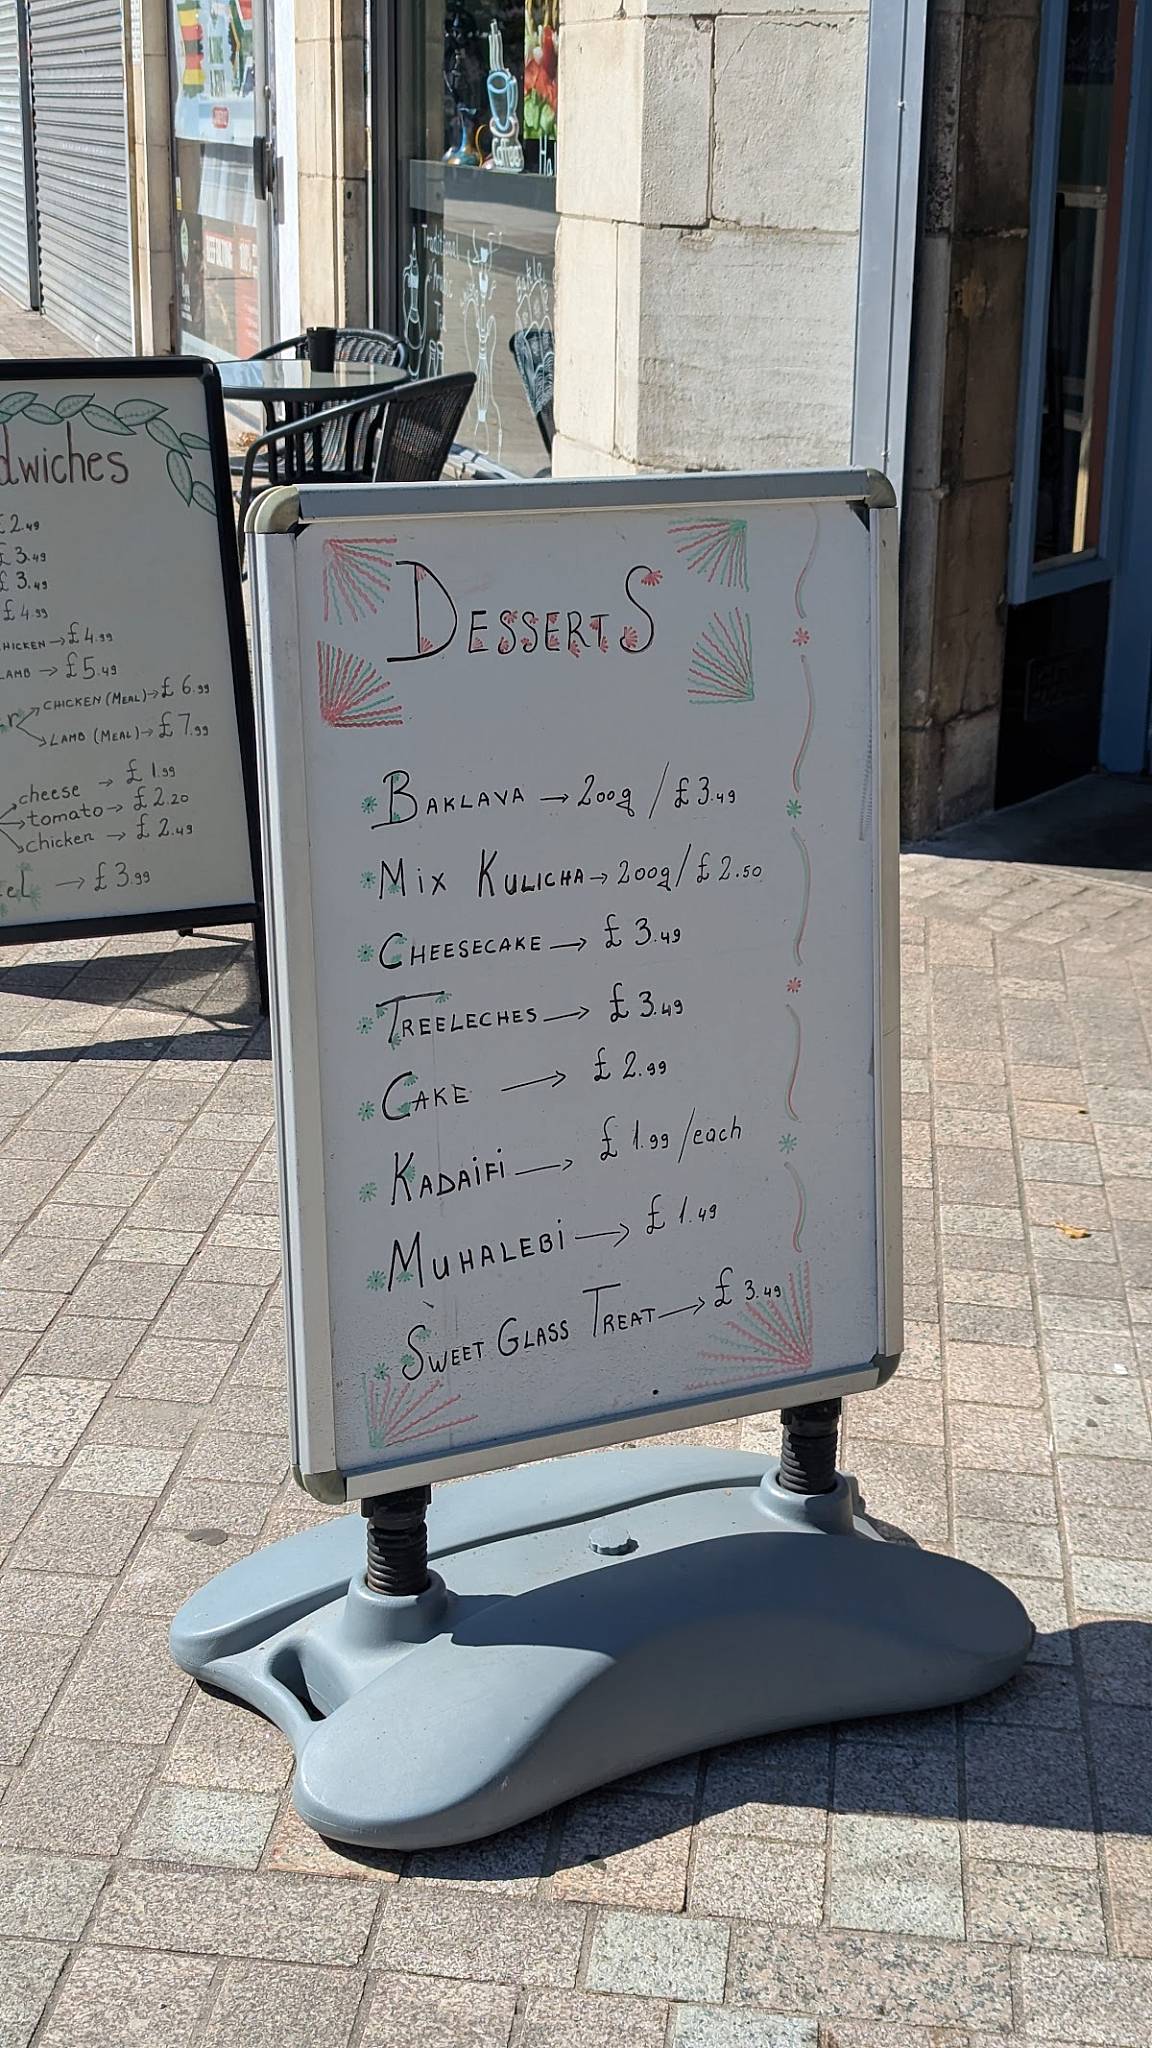 dwiches
£2.49
£3.49
£3.49
£4.99
CHICKEN → £4.99
LAMB → £5.49
CHICKEN (MEAL) → £6.99
LAMB (MEAL) → £7.99
cheese → £1.99
tomato → £2.20
chicken → £2.49
→ £3.99
DESSERTS
BAKLAVA → 200g / £3.49
MIX KULICHA → 200g / £2.50
CHEESECAKE → £3.49
TREELECHES → £3.49
CAKE → £2.99
KADAIFI → £1.99 / each
MUHALEBI → £1.49
SWEET GLASS TREAT → £3.49
coffee
Traditional